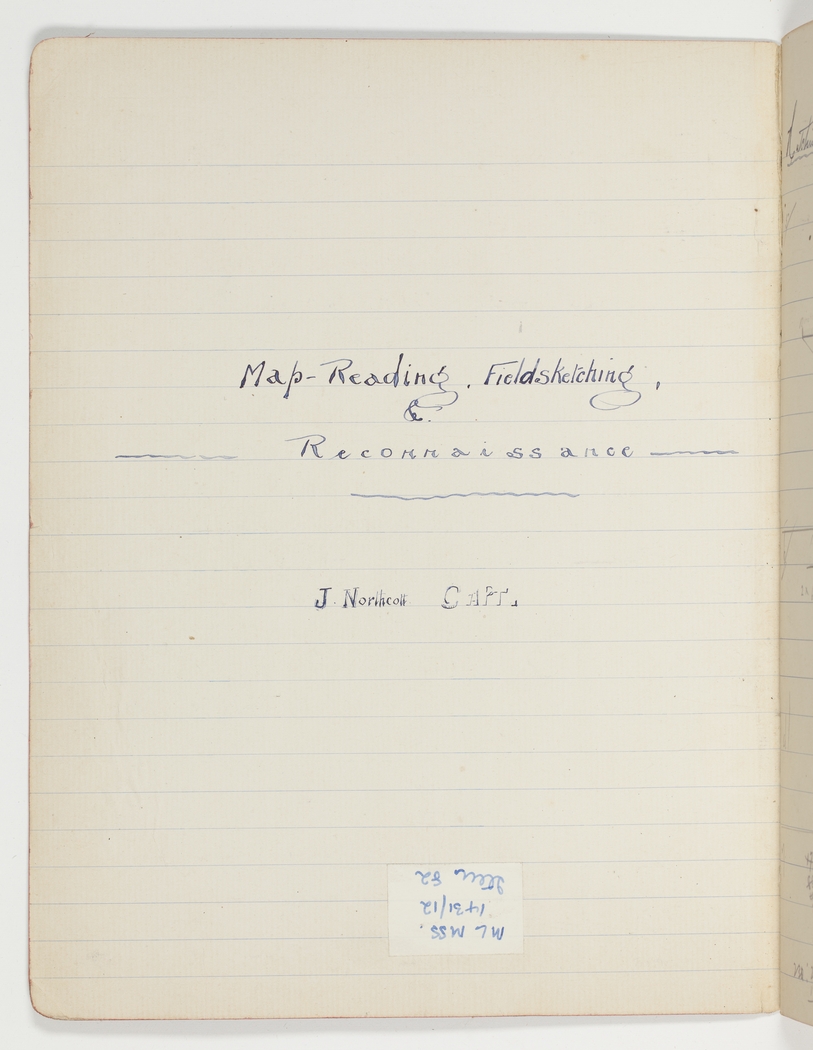 Map-Reading, Fieldsketching,
&
Reconnaissance
J. Northcott CAPT.
ML MSS.
1431/12
Item 82